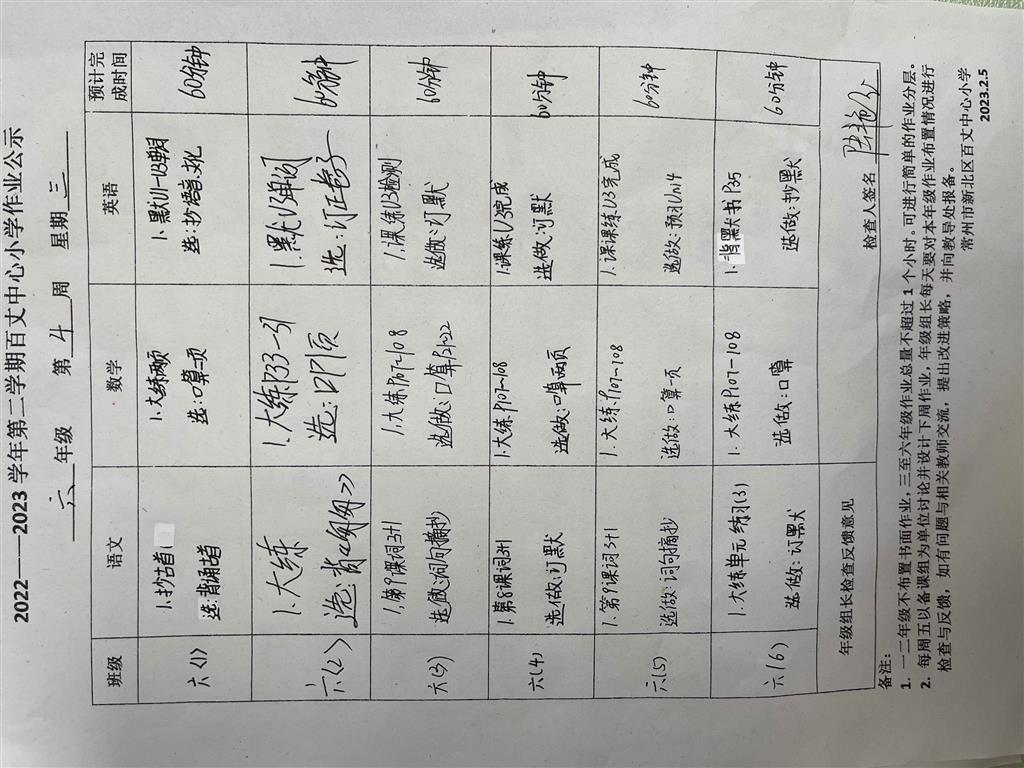 2022——2023 学年第二学期百丈中心小学作业公示
六 年级 第 4 周 星期 三
班级 语文 数学 英语 预计完成时间
六(1) 1.抄古诗 1.大练两页 1.默U1-U3单词 60分钟
选:背诵古诗 选:口算一页 选:抄语音、文化
六(2) 1.大练 1.大练P33-37 1.默U3单词 60分钟
选:背 选:口P1页 选:订正
六(3) 1.第9课词3+1 1.大练P107~108 1.课练U3检测 60分钟
选做:词句摘抄 选做:口算P21-22 选做:订默
六(4) 1.第8课词3+1 1.大练P107~108 1.课练U3完成 60分钟
选做:订默 选做:口算两页 选做:订默
六(5) 1.第9课词3+1 1.大练P107~108 1.课课练U3完成 60分钟
选做:词句摘抄 选做:口算一页 选做:预习Unit4
六(6) 1.大练单元练习(3) 1.大练P107-108 1.背默书P35 60分钟
选做:订默 选做:口算 选做:抄默
年级组长检查反馈意见 检查人签名
备注:
1. 一二年级不布置书面作业,三至六年级作业总量不超过 1 个小时。可进行简单的作业分层。
2. 每周五以备课组为单位讨论并设计下周作业,年级组长每天要对本年级作业布置情况进行
检查与反馈,如有问题与相关教师交流,提出改进策略,并向教导处报备。
常州市新北区百丈中心小学
2023.2.5